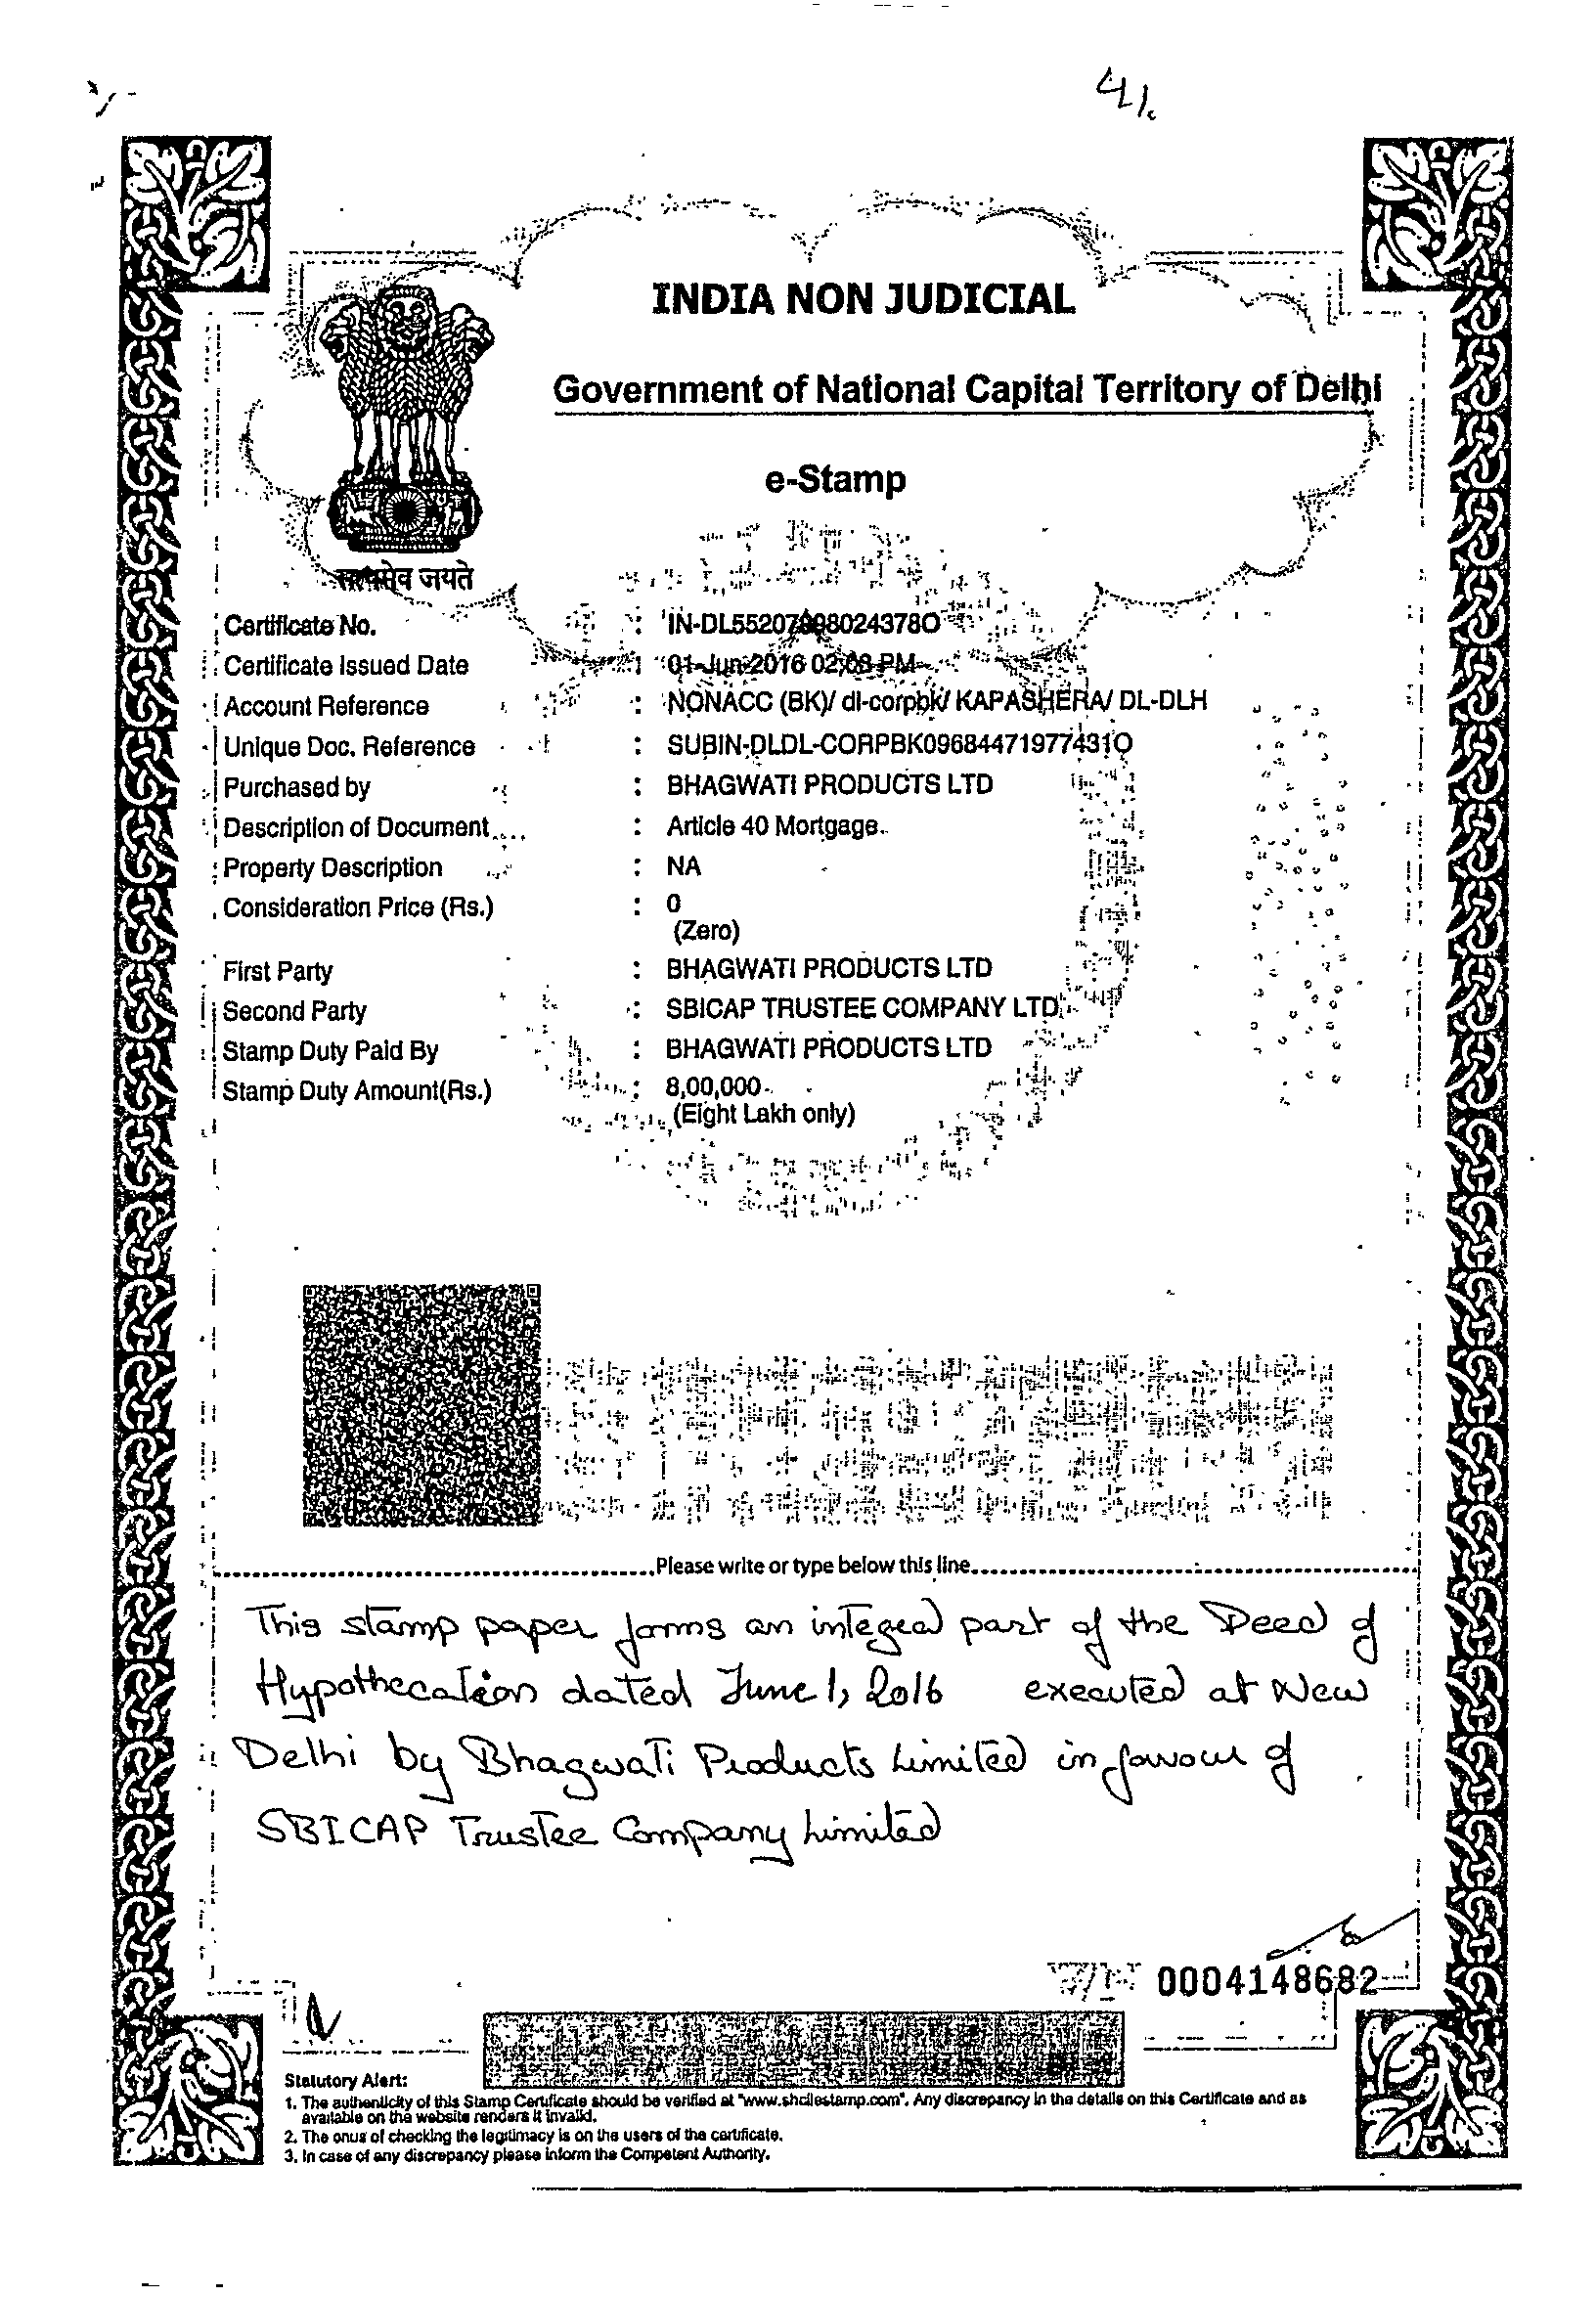 4/.
INDIA NON JUDICIAL
Government of National Capital Territory of Delhi
e-Stamp
सत्यमेव जयते
Certificate No. :
Certificate Issued Date : 01-Jun-2016 02:08 PM
Account Reference : NONACC (BK)/ dl-corpbk/ KAPASHERA/ DL-DLH
Unique Doc. Reference : SUBIN-DLDL-CORPBK09684471977431O
Purchased by : BHAGWATI PRODUCTS LTD
Description of Document : Article 40 Mortgage
Property Description : NA
Consideration Price (Rs.) : 0
(Zero)
First Party : BHAGWATI PRODUCTS LTD
Second Party : SBICAP TRUSTEE COMPANY LTD
Stamp Duty Paid By : BHAGWATI PRODUCTS LTD
Stamp Duty Amount(Rs.) : 8,00,000
(Eight Lakh only)
Please write or type below this line
This stamp paper forms an integral part of the Deed of
Hypothecation dated June 1, 2016 executed at New
Delhi by Bhagwati Products Limited in favour of
SBICAP Trustee Company Limited
0004148682
Statutory Alert:
1. The authenticity of this Stamp Certificate should be verified at "www.shcilestamp.com". Any discrepancy in the details on this Certificate and as
available on the website renders it invalid.
2. The onus of checking the legitimacy is on the users of the certificate.
3. In case of any discrepancy please inform the Competent Authority.